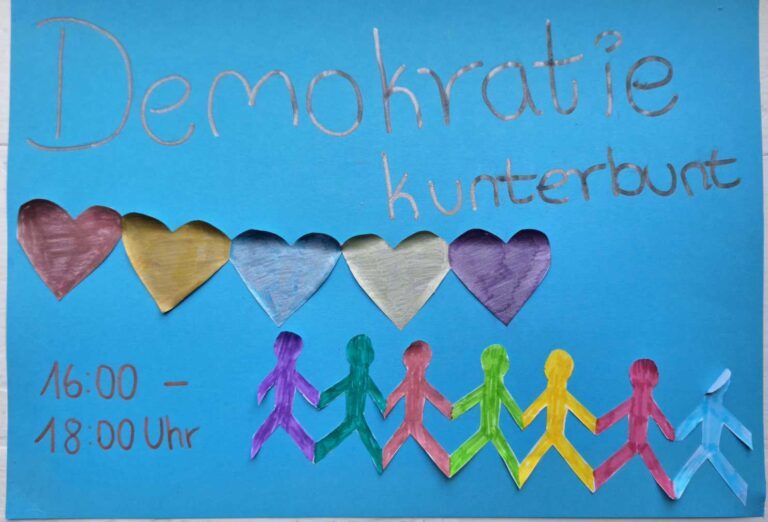 Demokratie
kunterbunt
16:00 -
18:00 Uhr